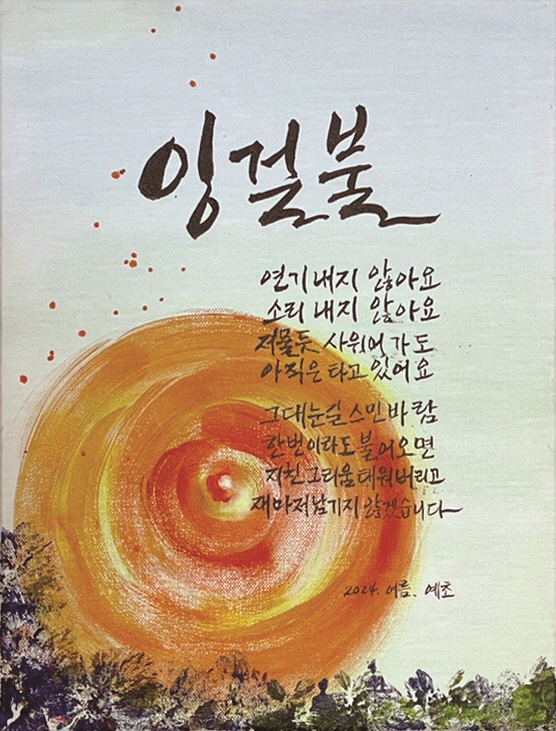 잉걸불
연기 내지 않아요
소리 내지 않아요
저물듯 사위어 가도
아직은 타고 있어요
그대 눈길 스민 바람
한번이라도 불어오면
지친 그리움 태워버리고
재마저 남기지 않겠습니다
2024. 여름. 예초